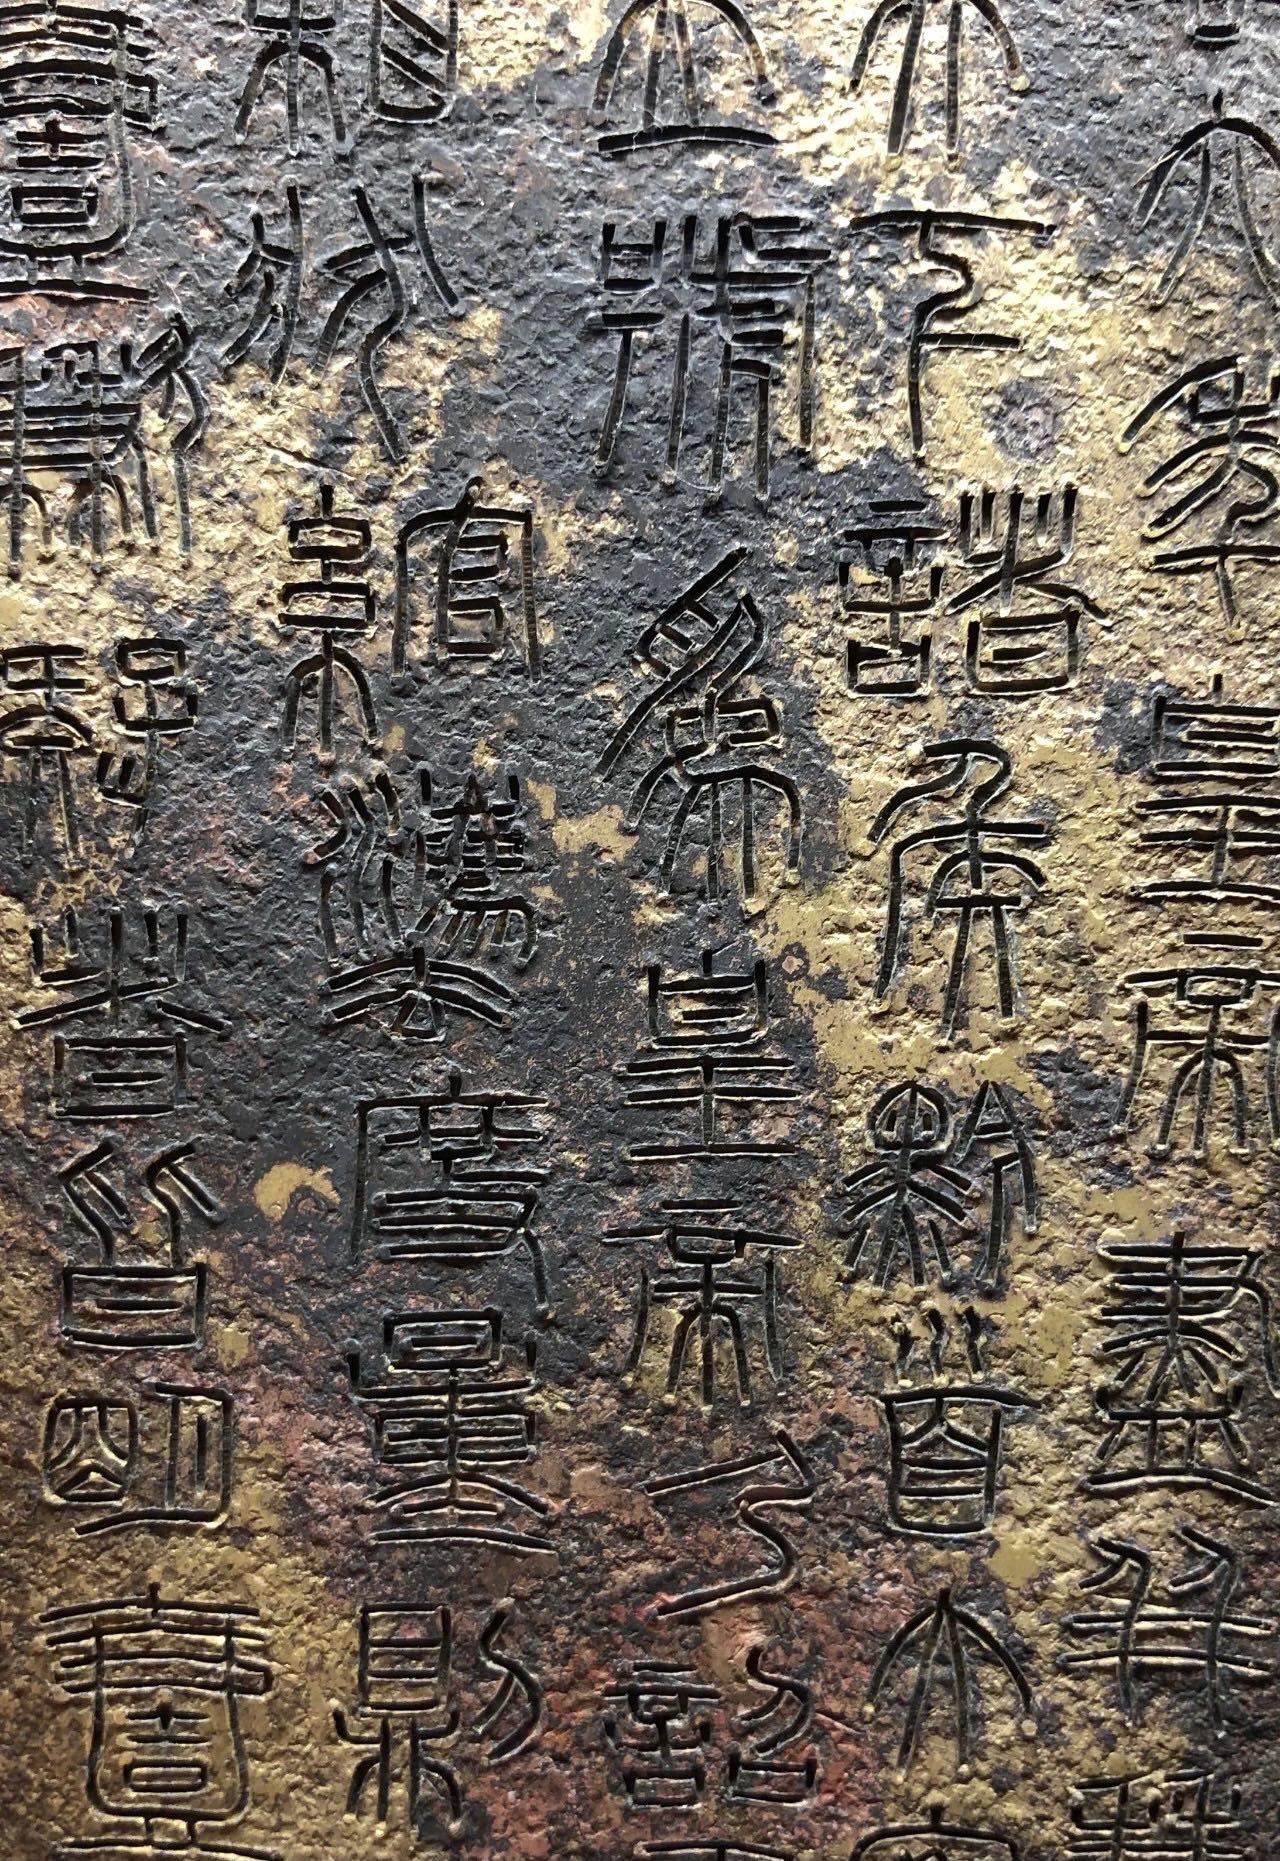 六年皇帝盡并兼
天下諸侯黔首大安
立號為皇帝乃詔
相狀綰灋度量則
壹歉疑者皆明壹